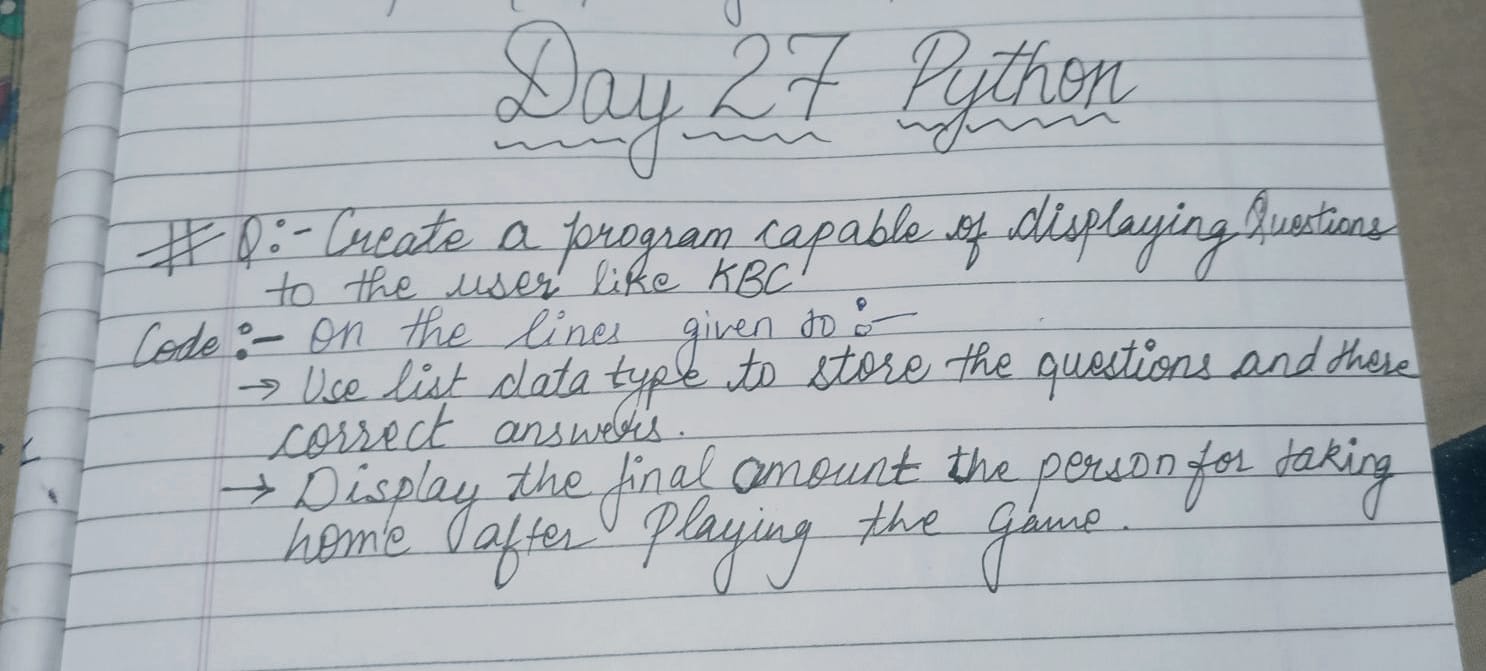 Day 27 Python
# Q:- Create a program capable of displaying Questions
to the user like KBC
Code :- On the lines given to :-
→ Use list data type to store the questions and there
correct answers.
→ Display the final amount the person for taking
home after playing the game.